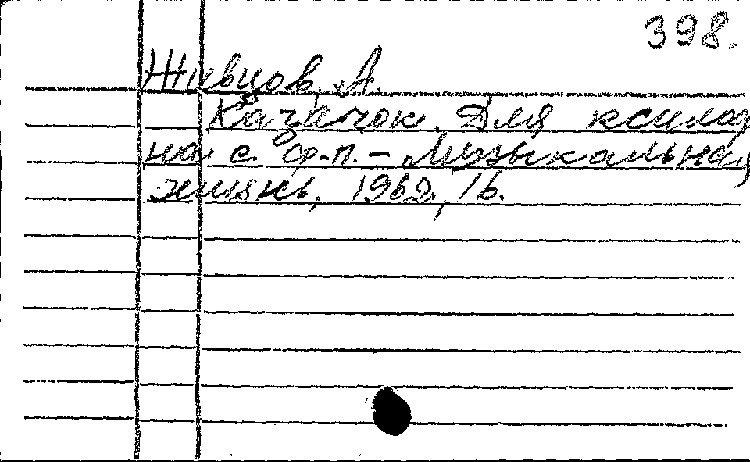 398.
Живцов, А.
Казачок. Для ксилоф
на с ф-п. - Музыкальная
жизнь, 1962, 16.